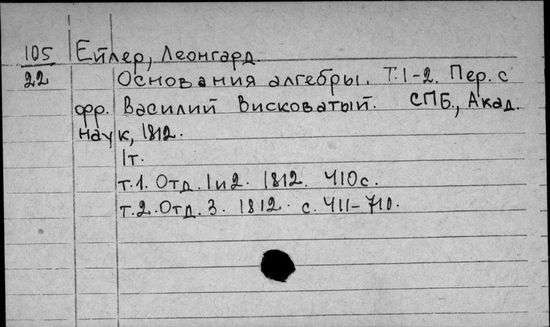 105 Ейлер, Леонгард.
22 Основания алгебры. Т.1-2. Пер. с
фр. Василий Висковатый. СПБ., Акад.
наук, 1812.
1т.
т.1. Отд. 1 и 2. 1812. 410 с.
т.2. Отд. 3. 1812. с. 411-710.